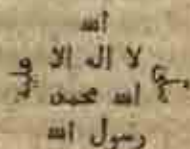 الله
لا اله الا
الله محمد
رسول الله
صلى
عليه